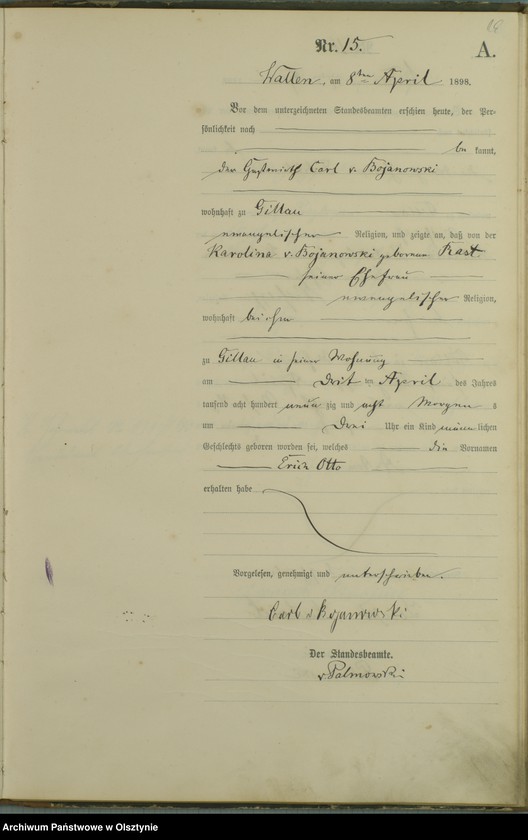 Nr. 15.
A.
am 8ten April 1898.
Vor dem unterzeichneten Standesbeamten erschien heute, der Per-
sönlichkeit nach
be kannt,
der Carl v. Bojanowski
wohnhaft zu Gillau
evangelischer Religion, und zeigte an, daß von der
Karolina v. Bojanowski geborenen
seiner Ehefrau
evangelischer Religion,
wohnhaft bei ihm
zu Gillau in seiner Wohnung
am Drit ten April des Jahres
tausend acht hundert neun zig und acht Morgen s
um Drei Uhr ein Kind männ lichen
Geschlechts geboren worden sei, welches die Vornamen
Erich Otto
erhalten habe
Vorgelesen, genehmigt und unterschrieben.
Carl v Bojanowski
Der Standesbeamte.
v. Palmowski
Archiwum Państwowe w Olsztynie